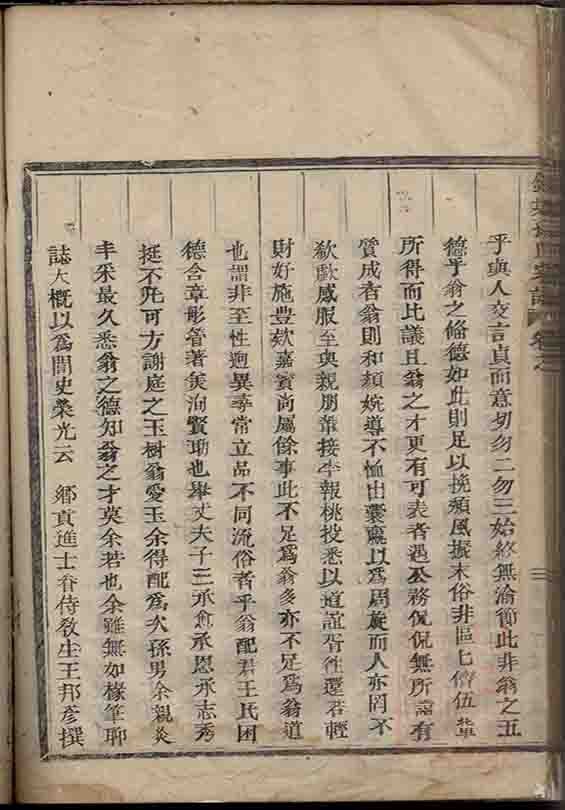 乎與人交言貞而意切勿二勿三始終無渝節此非翁之五
德乎翁之脩德如此則足以挽頹風擬末俗非區區儕伍輩
所得而比議且翁之才更有可表者遇公務侃侃無所諂有
質成者翁則和顏婉導不恤出囊竆以爲周旋而人亦罔不
欷歔感服至與親朋輩接李報桃投悉以道誼胥徃還若輕
財好施豊欵嘉賓尚屬餘事此不足爲翁多亦不足爲翁道
也謂非至性逈異尋常立品不同流俗者乎翁配君王氏困
德含章彤管著矣洵賢助也舉丈夫子三承愈承恩承志秀
挺不凢可方謝庭之玉樹翁愛玉余得配爲次孫男余親炙
丰采最久悉翁之德知翁之才莫余若也余雖無如椽筆聊
誌大概以爲閭史榮光云　鄉貢進士眷侍敎生王邦彥撰
卷之